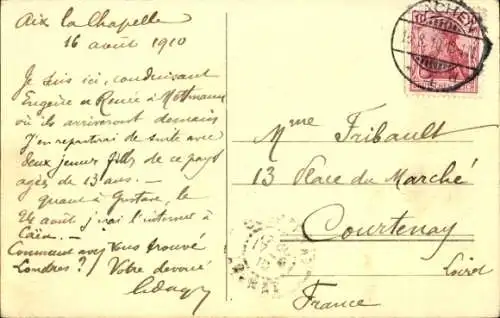 Aix la Chapelle
16 août 1910
Je suis ici, conduisant
Eugène et Renée à
où ils arriveront demain
J'en repartirai de suite avec
deux jeunes filles de ce pays
agées de 13 ans. —
quant à Gustave, le
24 août j'irai l'interner à
Caën. —
Comment avez Vous trouvé
Londres?/ Votre devoué
AACHEN
10
Mme Fribault
13 Place du Marché
Courtenay
Loiret
France